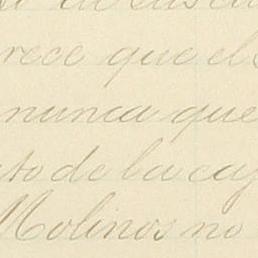 de
rece que el
nunca que
sto de la caj
Molinos no